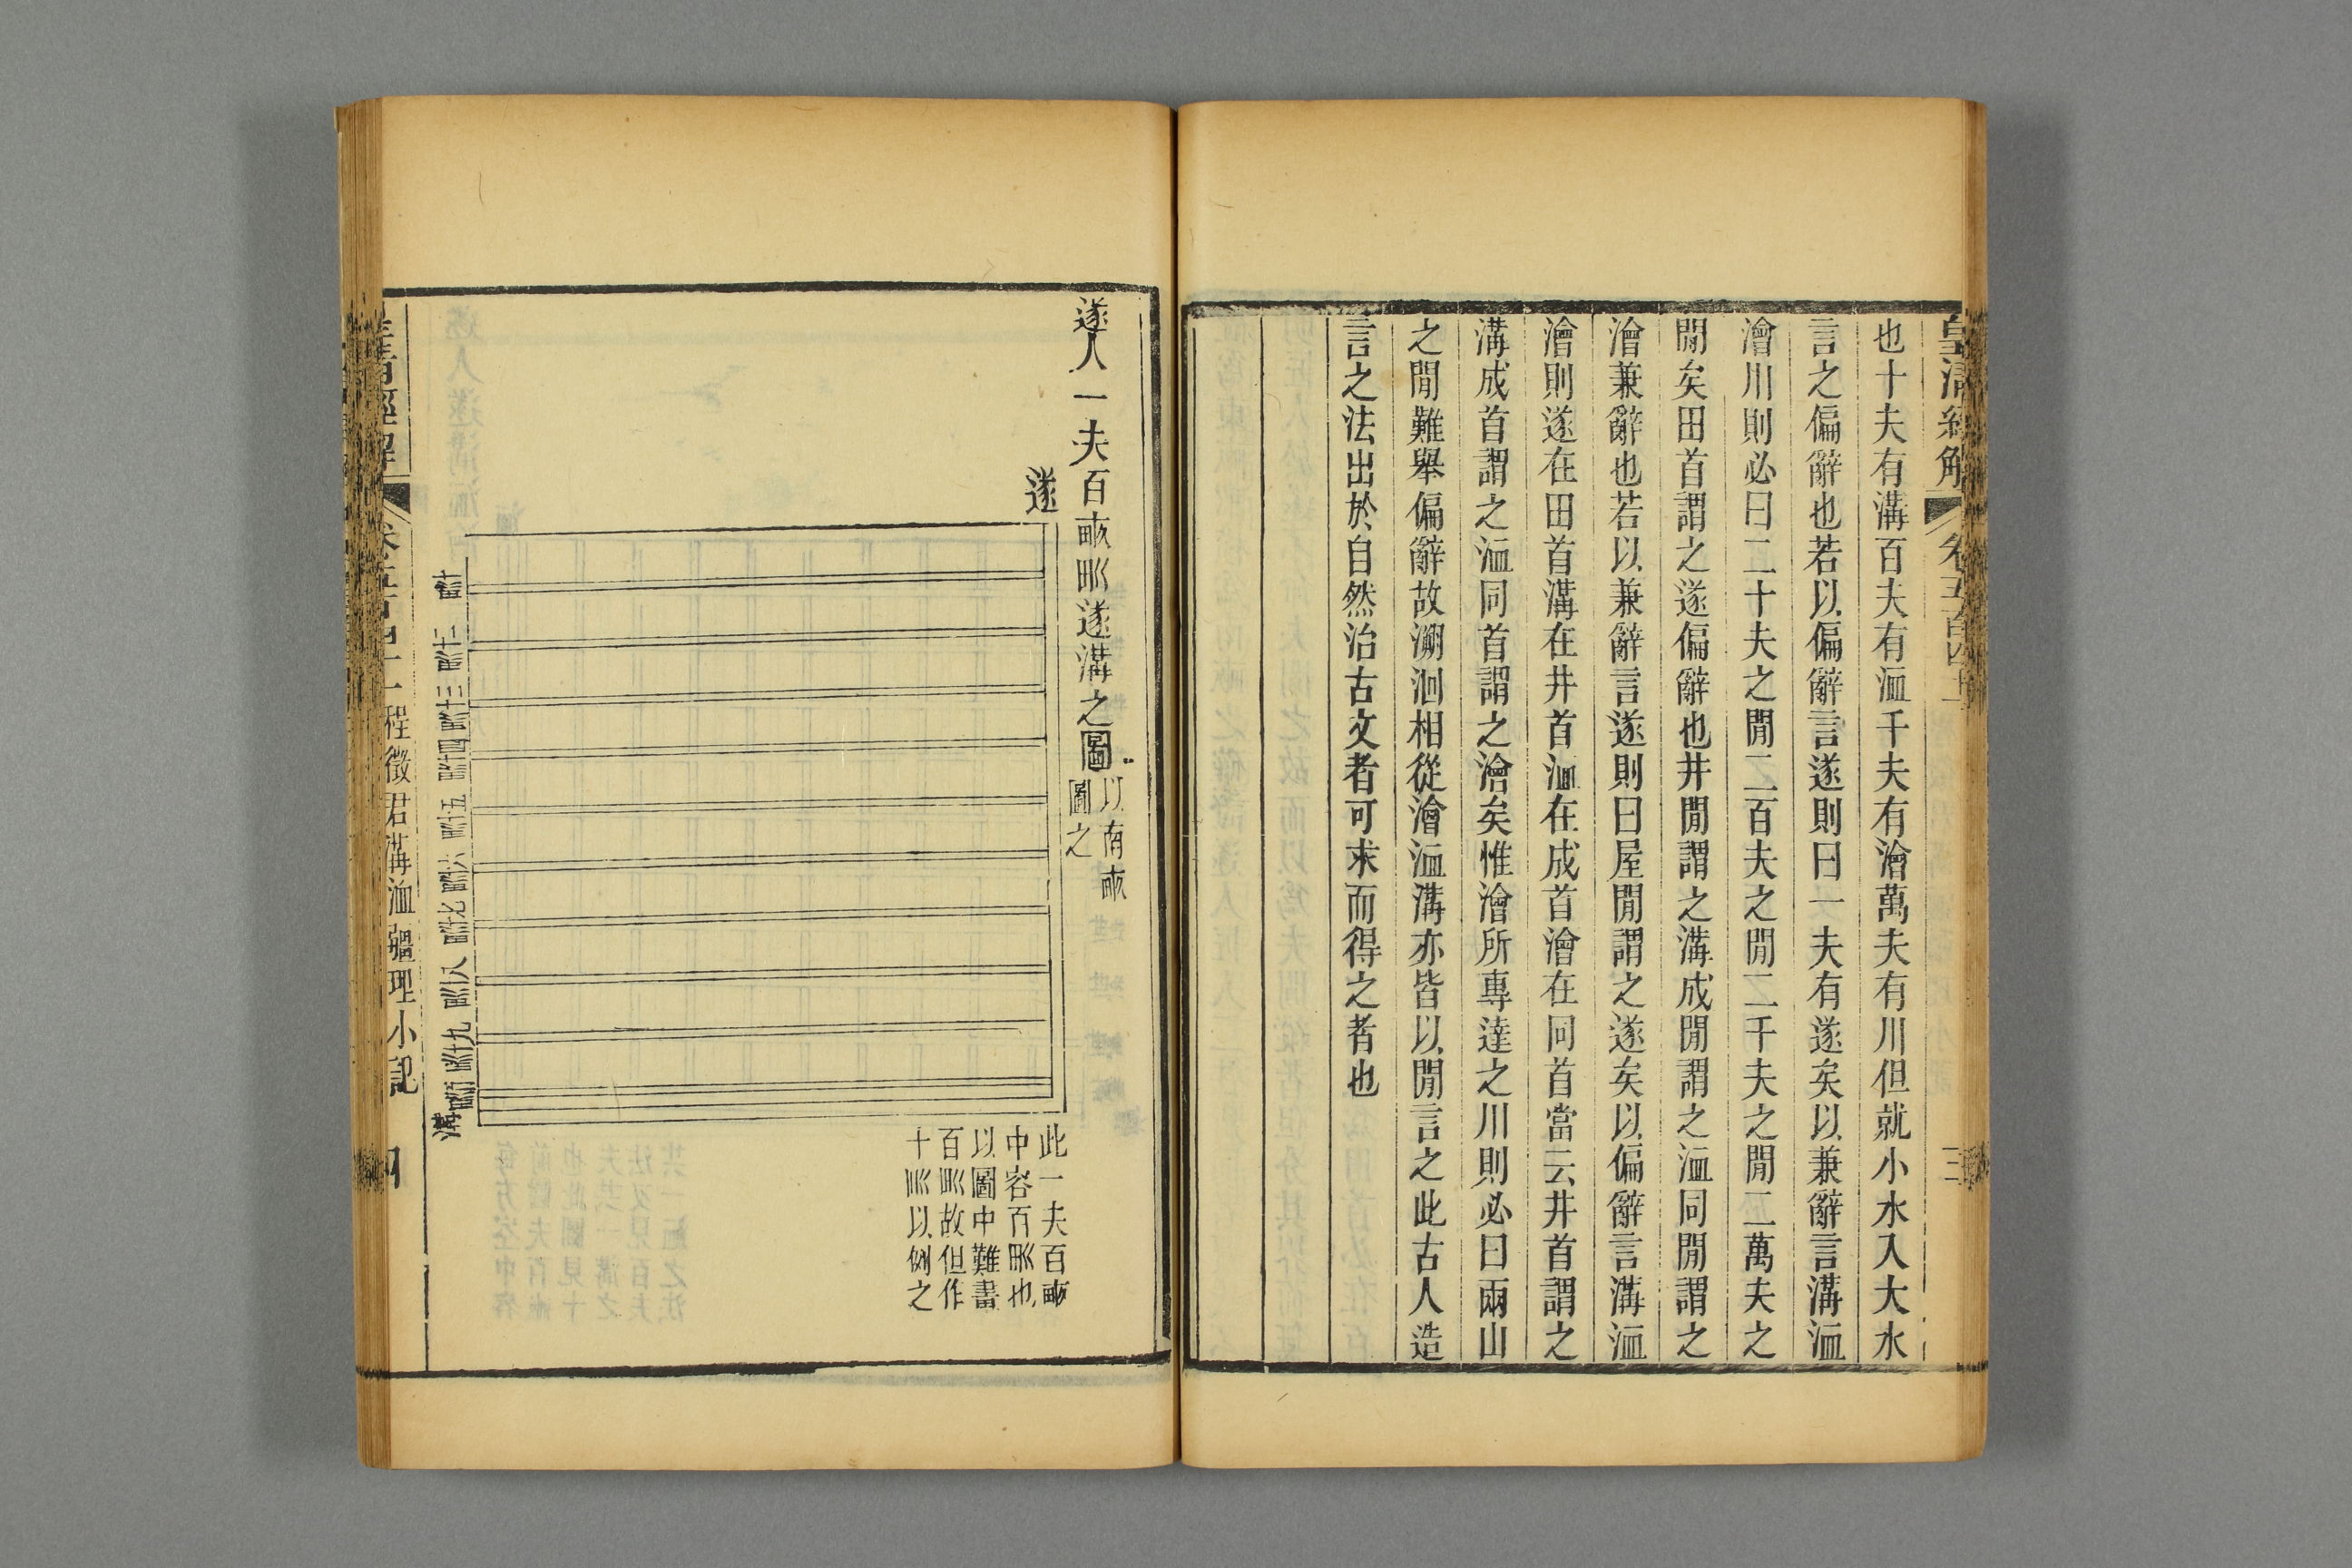 皇清經解
卷五百四十一
三
也十夫有溝百夫有洫千夫有澮萬夫有川但就小水入大水
言之偏辭也若以偏辭言遂則曰一夫有遂矣以兼辭言溝洫
澮川則必曰二十夫之閒二百夫之閒二千夫之閒二萬夫之
閒矣田首謂之遂偏辭也井閒謂之溝成閒謂之洫同閒謂之
澮兼辭也若以兼辭言遂則曰屋閒謂之遂矣以偏辭言溝洫
澮則遂在田首溝在井首洫在成首澮在同首當云井首謂之
溝成首謂之洫同首謂之澮矣惟澮所專達之川則必曰兩山
之閒難舉偏辭故溯洄相從澮洫溝亦皆以閒言之此古人造
言之法出於自然治古文者可求而得之者也
遂人一夫百畝甽遂溝之圖
以南畝
圖之
遂
此一夫百畝
中容百甽也
以圖中難畫
百甽故但作
十甽以例之
溝
皇清經解
卷五百四十一
程徵君溝洫疆理小記
四